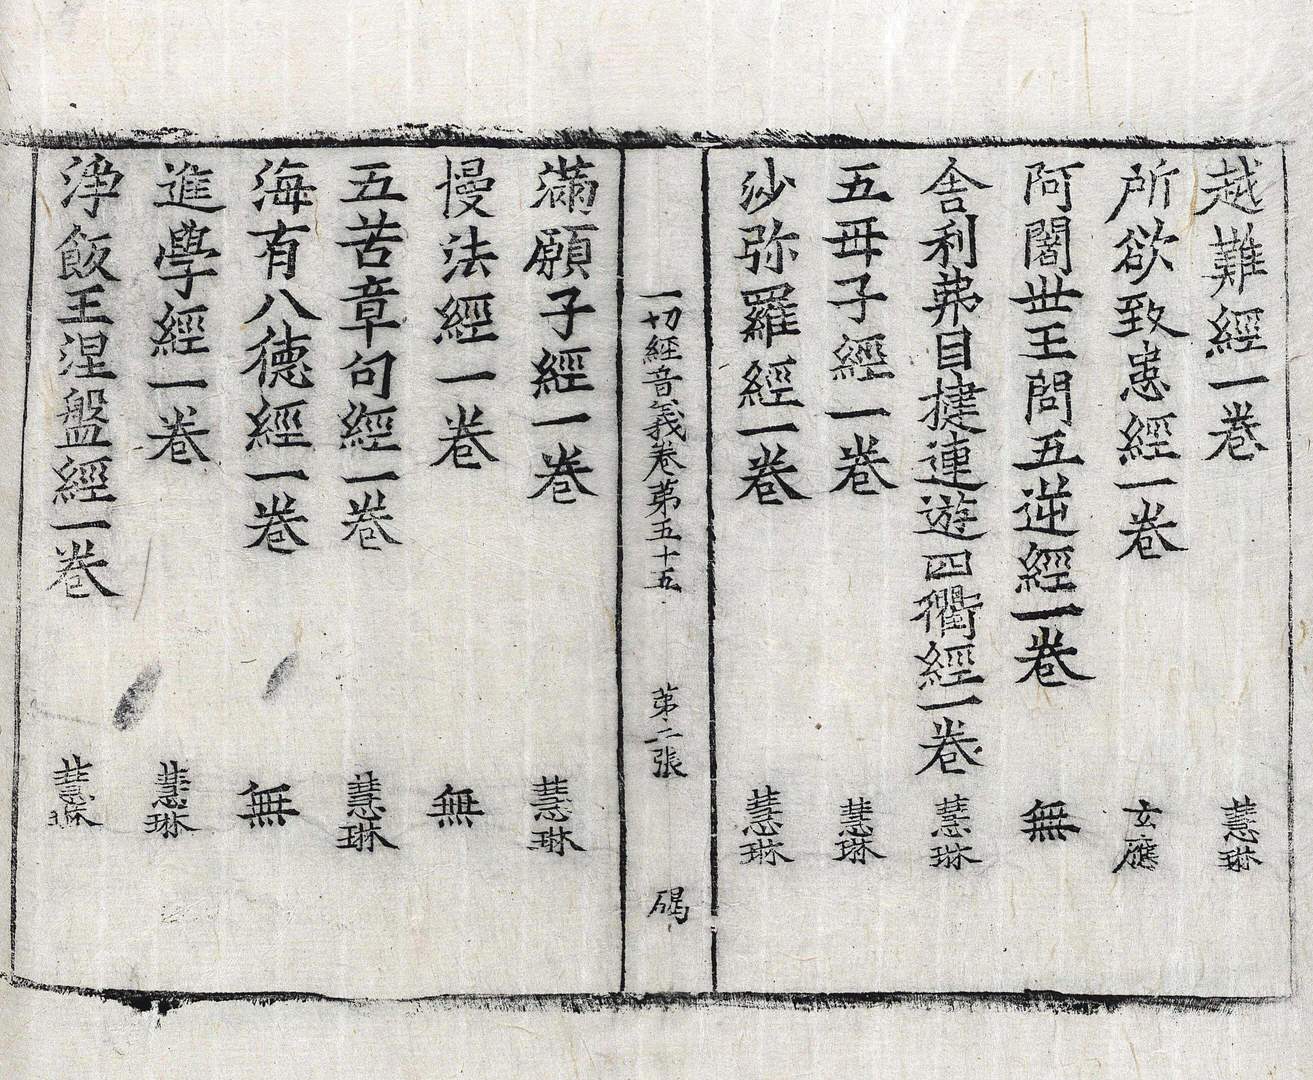 越難經一卷 慧琳
所欲致患經一卷 玄應
阿闍世王問五逆經一卷 無
舎利弗目揵連遊四衢經一卷 慧琳
五母子經一卷 慧琳
沙弥羅經一卷 慧琳
一切經音義卷第五十五 第二張 碣
滿願子經一卷 慧琳
慢法經一卷 無
五苦章句經一卷 慧琳
海有八德經一卷 無
進學經一卷 慧琳
淨飯王涅盤經一卷 慧琳